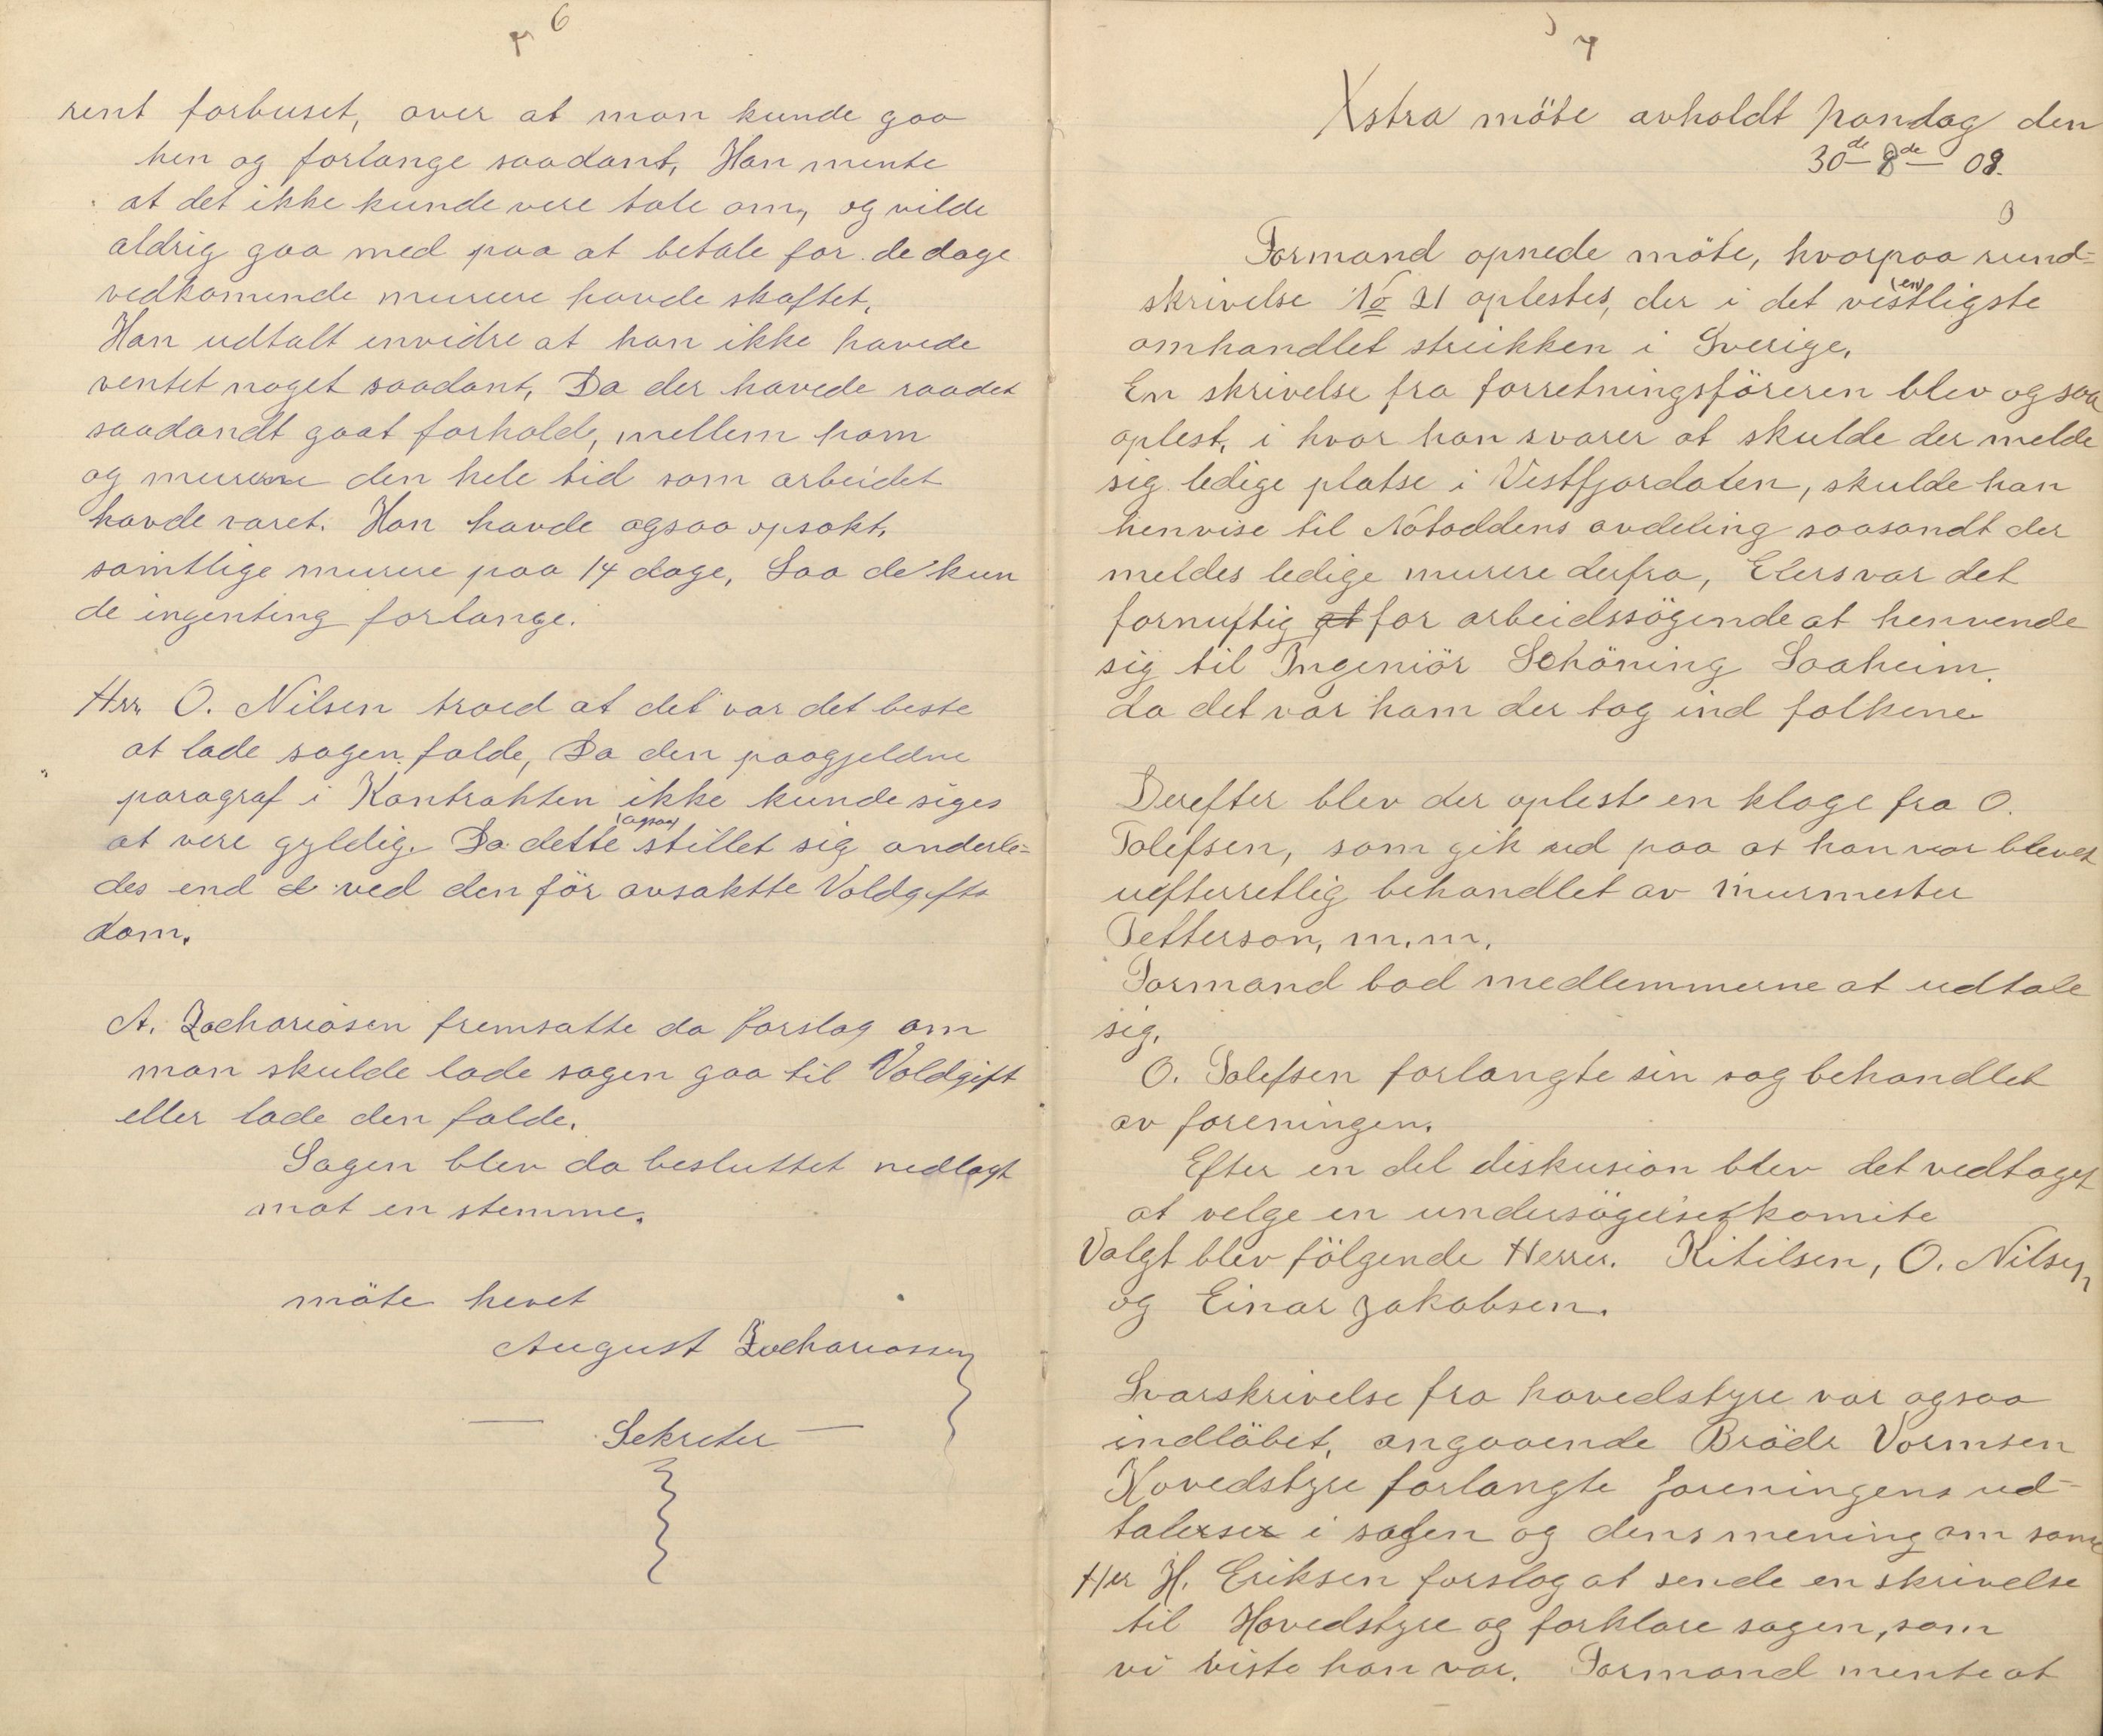 6
rent forbuset, over at man kunde gaa
hen og forlange saadant, Han mente
at det ikke kunde vere tale om, og vilde
aldrig gaa med paa at betale for de dage
vedkomende murere havde skaftet,
Han udtalt envidre at han ikke havede
ventet noget saadant, Da der havede raadet
saadandt gaat forhold, mellem ham
og murerne den hele tid som arbeidet
havde varet. Han havde ogsaa opsakt,
samtlige murere paa 14 dage, Saa de kun
de ingenting forlange.
Hrr. O. Nilsen troed at det var det beste
at lade sagen falde, Da den paagjeldne
paragraf i Kontrakten ikke kunde siges
at vere gyldig. Da dette (ogsaa) stillet sig anderle-
des end ved den för avsaktte Voldgifts
dom.
A. Zachariasen fremsatte da forslag om
man skulde lade sagen gaa til Voldgift
eller lade den falde.
Sagen blev da besluttet nedlagt
mot en stemme.
möte hevet
August Zachariassen
Sekreter
7
Xstra möte avholdt Mandag den
30de 8de 09.
Formand opnede möte, hvorpaa rund-
skrivelse No 21 oplestes, der i det vestligste (en)
omhandlet streikken i Sverige.
En skrivelse fra forretningsföreren blev ogsaa
oplest, i hvor han svarer at skulde der melde
sig ledige platse i Vestfjordalen, skulde han
henvise til Notoddens avdeling saasandt der
meldes ledige murere derfra, Elers var det
fornuftig at for arbeidssögende at henvende
sig til Ingeniör Schöning Saaheim.
da det var ham der tog ind folkene
Derefter blev der oplest en klage fra O.
Tolefsen, som gik ud paa at han var blevet
uefterretlig behandlet av murmester
Petterson, m.m.
Formand bad medlemmerne at udtale
sig.
O. Tolefsen forlangte sin sag behandlet
av foreningen.
Efter en del diskusion blev det vedtaget
at velge en undersögelses komite
Valgt blev fölgende Herrer. Kitilsen, O. Nilsen
og Einar Jakobsen.
Svarskrivelse fra havedstyre var ogsaa
indlöbet, angaaende Brödr Vormsen
Hovedstyre forlangte foreningens ud-
talelser i sagen og dens mening om same
Her H. Eriksen forslog at sende en skrivelse
til Hovedstyre og forklare sagen, som
vi viste han var. Formand mente at